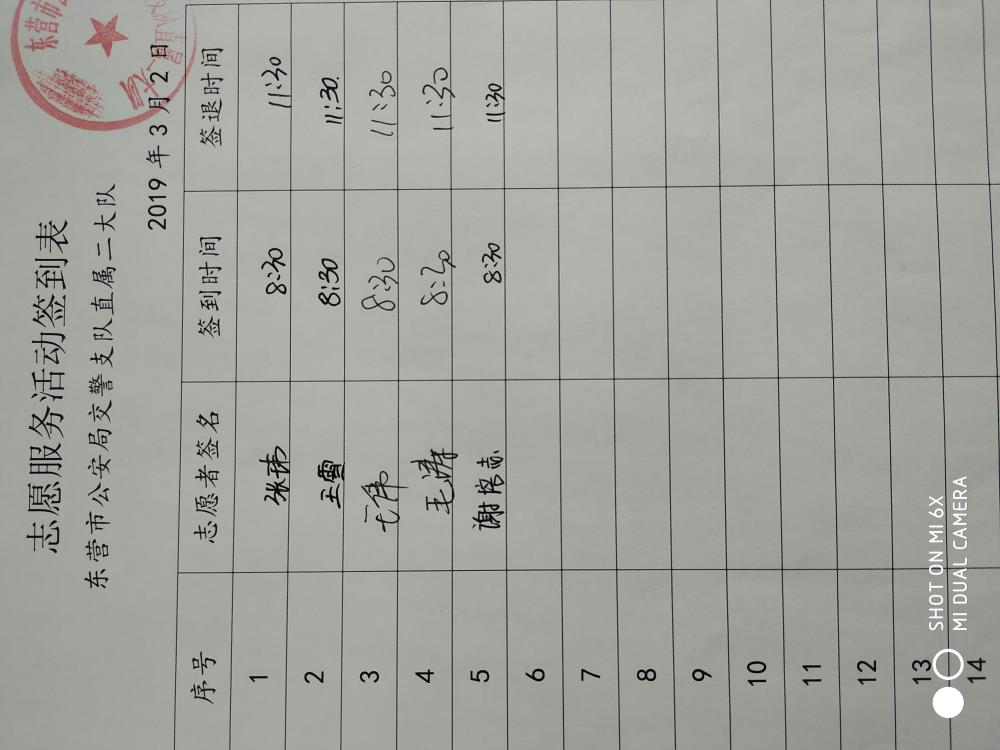 志愿服务活动签到表
东营市公安局交警支队直属二大队
2019 年 3 月 2 日
序号 志愿者签名 签到时间 签退时间
1 张玮 8:30 11:30
2 王雪 8:30 11:30
3 8:30 11:30
4 毛涛 8:30 11:30
5 谢培 8:30 11:30
6
7
8
9
10
11
12
13
14
东营市
SHOT ON MI 6X
MI DUAL CAMERA